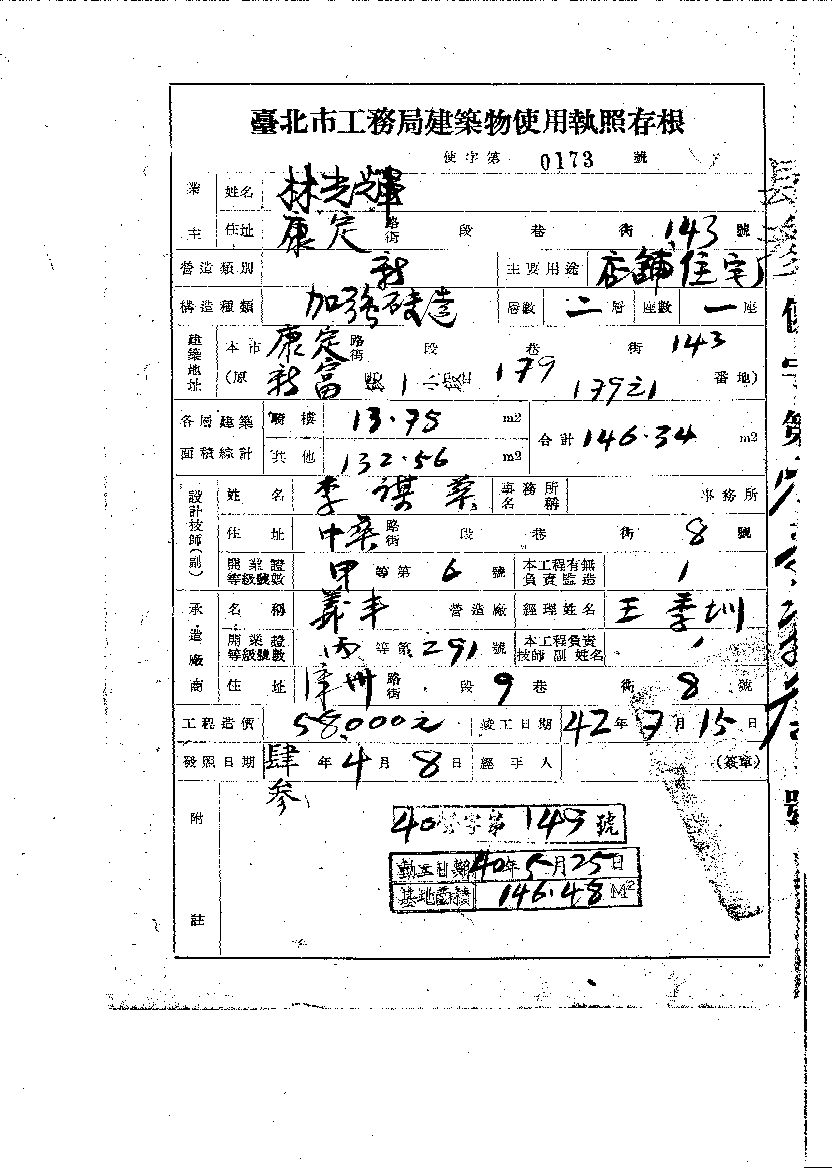 臺北市工務局建築物使用執照存根
使字第 0173 號
業主 姓名 林光輝
住址 康定 路街 段 巷 街 143 號
營造類別 新 主要用途 店鋪住宅
構造種類 加強磚造 層數 二 層 座數 一 座
建築地址 本市 康定 路街 段 巷 街 143
(原 新富 段 1 小段 179 179之1 番地)
各層建築面積綜計 騎樓 13.78 m2 合計 146.34 m2
其他 132.56 m2
設計技師(副) 姓名 李謀 事務所名稱 事務所
住址 路街 段 巷 街 8 號
開業證等級號數 甲 等第 6 號 本工程有無負責監造
承造廠商 名稱 義丰 營造廠 經理姓名 王季圳
開業證等級號數 丙 等第 291 號 本工程負責技師副姓名
住址 漳州 路街 段 9 巷 街 8 號
工程造價 58,000元 竣工日期 42年7月15日
發照日期 肆參 年 4 月 8 日 經手人 (簽章)
附註
40 營字第 149 號
動工日期 40年5月25日
基地面積 146.48 M²